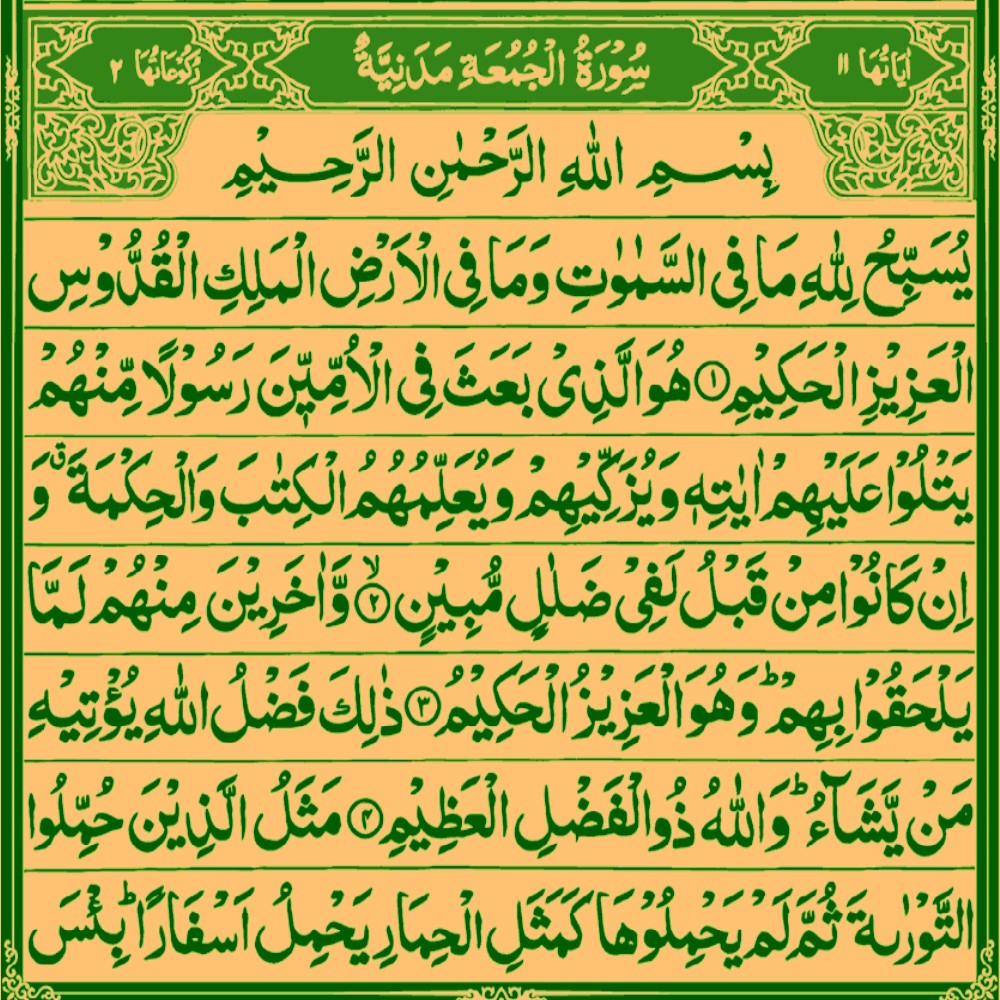 اٰيَاتُهَا ١١ سُوْرَةُ الْجُمُعَةِ مَدَنِيَّةٌ رُكُوْعَاتُهَا ٢
بِسْمِ اللّٰهِ الرَّحْمٰنِ الرَّحِيْمِ
يُسَبِّحُ لِلّٰهِ مَا فِى السَّمٰوٰتِ وَمَا فِى الْاَرْضِ الْمَلِكِ الْقُدُّوْسِ
الْعَزِيْزِ الْحَكِيْمِ ۝۱ هُوَ الَّذِىْ بَعَثَ فِى الْاُمِّيّٖنَ رَسُوْلًا مِّنْهُمْ
يَتْلُوْا عَلَيْهِمْ اٰيٰتِهٖ وَيُزَكِّيْهِمْ وَيُعَلِّمُهُمُ الْكِتٰبَ وَالْحِكْمَةَ ۗ وَ
اِنْ كَانُوْا مِنْ قَبْلُ لَفِىْ ضَلٰلٍ مُّبِيْنٍ ۝۲ۙ وَّاٰخَرِيْنَ مِنْهُمْ لَمَّا
يَلْحَقُوْا بِهِمْ ؕ وَهُوَ الْعَزِيْزُ الْحَكِيْمُ ۝۳ ذٰلِكَ فَضْلُ اللّٰهِ يُؤْتِيْهِ
مَنْ يَّشَآءُ ؕ وَاللّٰهُ ذُو الْفَضْلِ الْعَظِيْمِ ۝۴ مَثَلُ الَّذِيْنَ حُمِّلُوا
التَّوْرٰىةَ ثُمَّ لَمْ يَحْمِلُوْهَا كَمَثَلِ الْحِمَارِ يَحْمِلُ اَسْفَارًا ؕ بِئْسَ